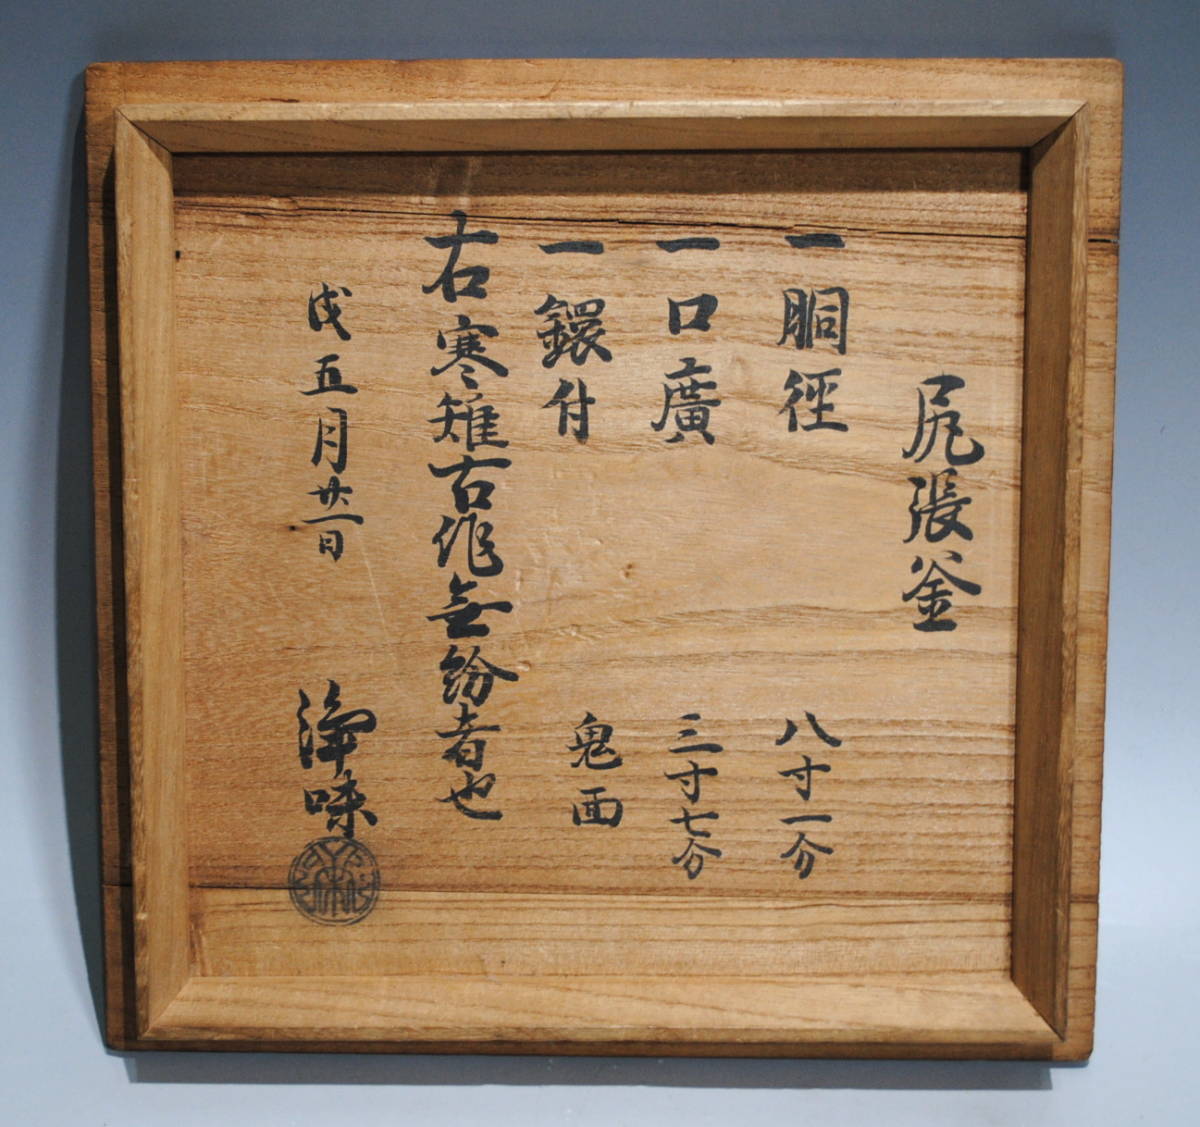 尻張釜
一 胴径 八寸一分
一 口廣 三寸七分
一 鐶付 鬼面
右寒雉古作無紛者也
戌五月廿一日 浄味